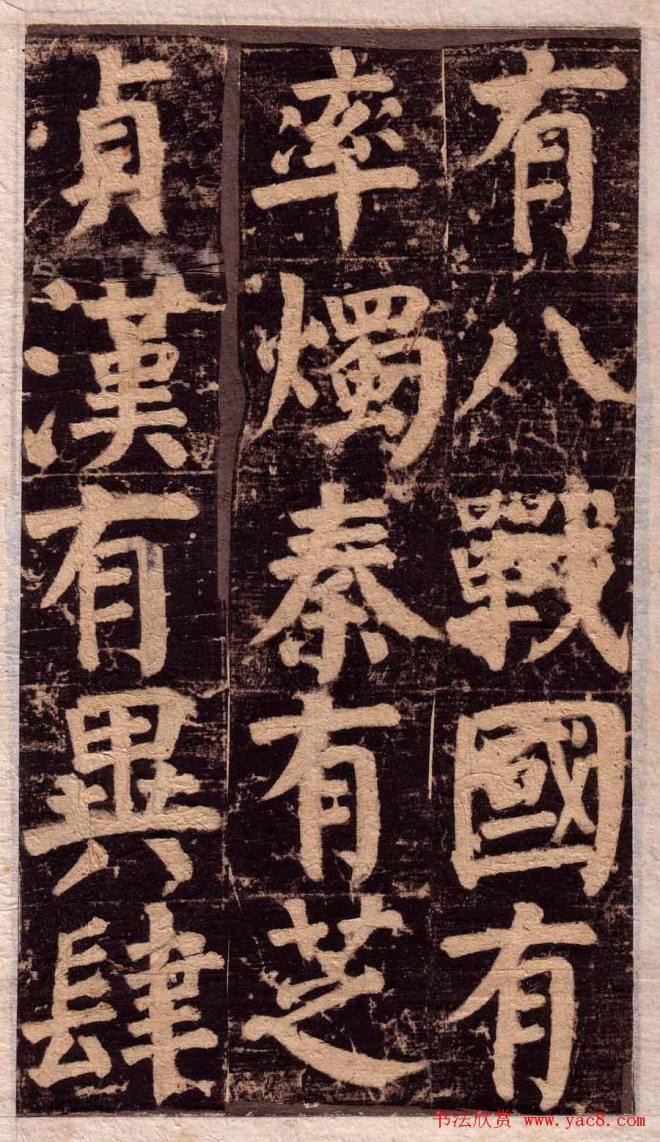 有八戰國有
率燭秦有芝
貞漢有異肆
书法欣赏 www.yac8.com